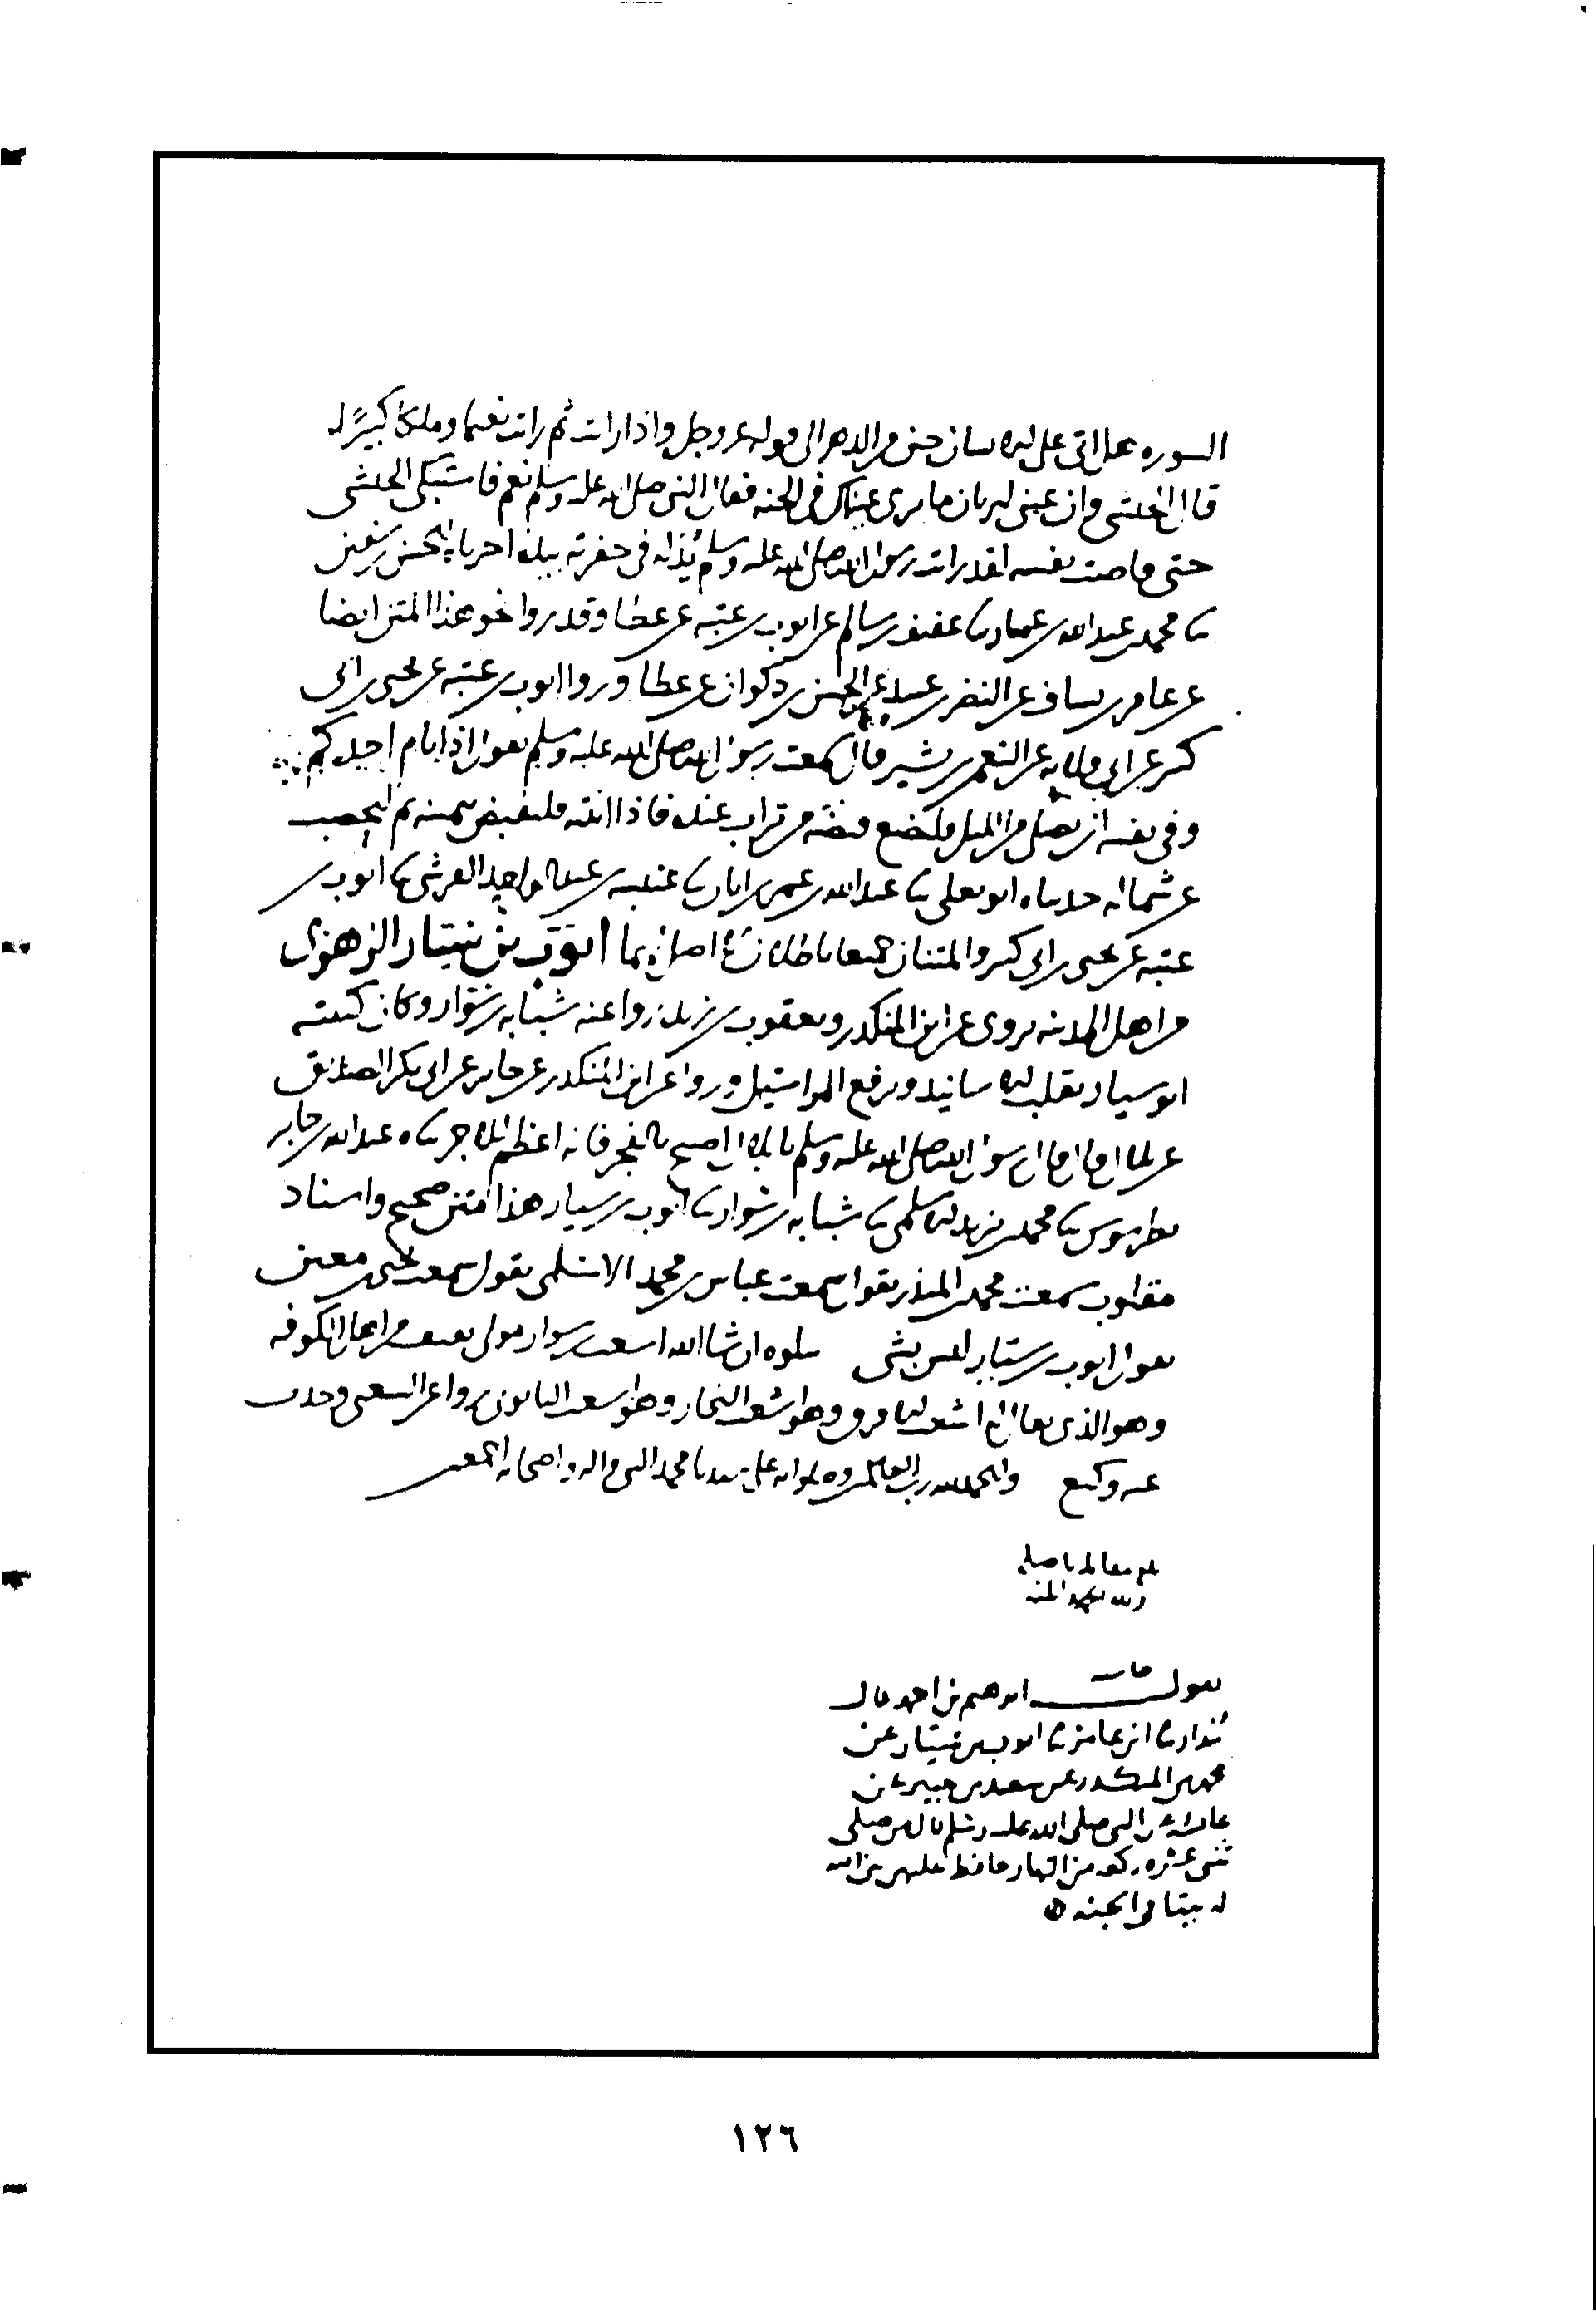 السوره هل اتى على الانسان حين من الدهر الى قوله عز وجل واذا رايت ثم رايت نعيما وملكا كبيرًا
قال الحبشي وان عيني لتريان ما ترى عيناك في الجنه فقال النبي صلى الله عليه وسلم نعم فاشتكى الحبشي
حتى فاضت نفسه لقد رايت رسول الله صلى الله عليه وسلم يُدْليه في حفرته بيده اخبرناه الحسن بن سفين
ثنا محمد بن عبد الله بن عمار ثنا عفيف بن سالم عن ايوب بن عتبه عن عطا وقد روا نحو هذا المتن ايضا
عن عامر بن يساف عن النضر بن عبيد عن الحسن بن ذكوان عن عطا وروا ايوب بن عتبه عن يحيى بن ابي
كثير عن ابي قلابه عن النعمن بن بشير قال سمعت رسول الله صلى الله عليه وسلم يقول اذا نام احدكم
وفي نفسه ان يصلي من الليل فليضع قبضه من تراب عنده فاذا انتبه فليقبض بيمينه ثم ليحصب
عن شماله حدثناه ابو يعلى ثنا عبد الله بن عمر بن ابان ثنا عنبسه بن عبد الواحد القرشي ثنا ايوب بن
عتبه عن يحيى بن ابي كثير والمتنان جميعا باطلان لا اصل لهما ايوب بن سيار الزهري
من اهل المدينه يروي عن ابن المنكدر ويعقوب بن زيد روا عنه شبابه بن سوار وكان كنيته
ابو سيار يقلب الاسانيد ويرفع المراسيل وروا عن ابن المنكدر عن جابر عن ابي بكر الصديق
عن بلال قال قال رسول الله صلى الله عليه وسلم يا بلال اصبح بالفجر فانه اعظم للاجر ثناه عبد الله بن جابر
بطرسوس ثنا محمد بن يزيد الاسلمي ثنا شبابه بن سوار ثنا ايوب بن سيار هذا متن صحيح واسناد
مقلوب سمعت محمد بن المنذر يقول سمعت عباس بن محمد الاسلمي يقول سمعت يحيى بن معين
يقول ايوب بن سيار ليس بشي يتلوه ان شا الله اشعث بن سوار مولى ثقيف من اهل الكوفه
وهو الذي يقال له اشعث الافرق وهو اشعث النجار وهو اشعث التابوتي روا عن الشعبي وحدث
عنه وكيع والحمد لله رب العالمين وصلواته على سيدنا محمد النبي واله واصحابه اجمعين
بلغ مقابله باصله
ولله الحمد والمنه
يقول ابرهيم بن احمد قال
بندار ثنا ابو عامر ثنا ايوب بن سيار عن
محمد بن المنكدر عن سعيد بن جبير عن
عايشه عن النبي صلى الله عليه وسلم قال من صلى
ثنتي عشره ركعه من النهار حافظ عليهن بنى الله
له بيتا في الجنه
١٢٦